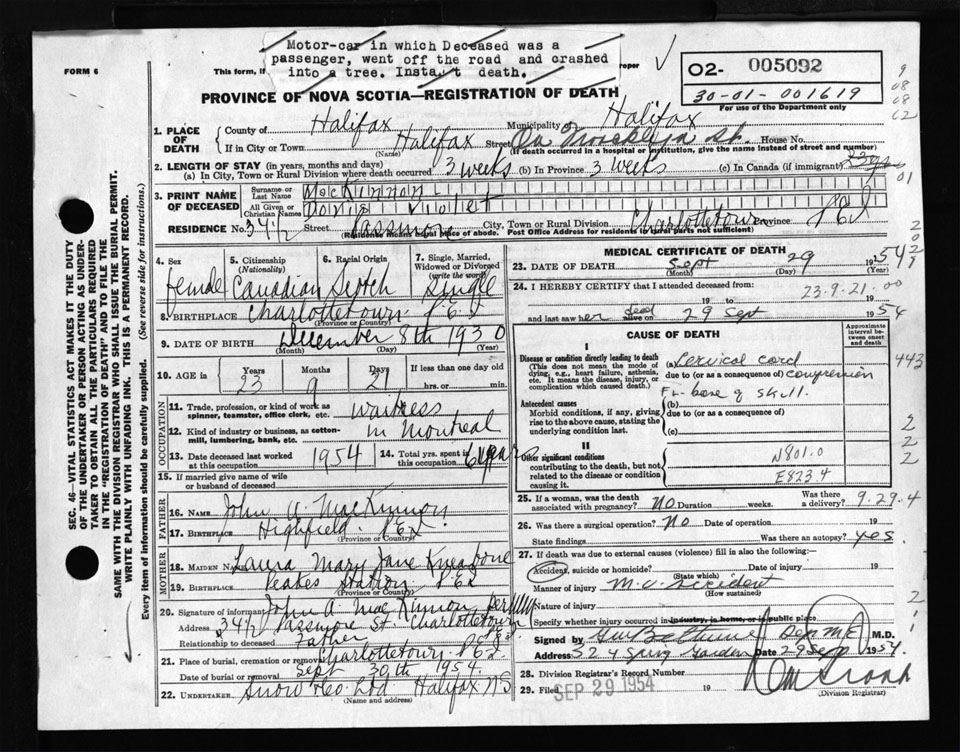 Motor-car in which Deceased was a
passenger, went off the road and crashed
into a tree. Instant death.
FORM 6
This form, if
roper
O2- 005092
30-01-001619
For use of the Department only
PROVINCE OF NOVA SCOTIA—REGISTRATION OF DEATH
1. PLACE OF DEATH
County of Halifax Municipality of Halifax
If in City or Town Halifax Street House No.
(Name) (If death occurred in a hospital or institution, give the name instead of street and number)
2. LENGTH OF STAY (in years, months and days)
(a) In City, Town or Rural Division where death occurred 3 weeks (b) In Province 3 weeks (c) In Canada (if immigrant)
3. PRINT NAME OF DECEASED
Surname or Last Name MacKinnon
All Given or Christian Names Doris Violet
RESIDENCE No. 34 1/2 Street Passmore City, Town or Rural Division Charlottetown Province PEI
(Residence means usual place of abode. Post Office Address for residents in rural parts not sufficient)
4. Sex
female
5. Citizenship (Nationality)
Canadian
6. Racial Origin
Scotch
7. Single, Married, Widowed or Divorced (write the word)
Single
8. BIRTHPLACE Charlottetown P.E.I.
(Province or Country)
9. DATE OF BIRTH December 8th 1930
(Month) (Day) (Year)
10. AGE in Years Months Days If less than one day old
23 9 21 hrs. or min.
OCCUPATION
11. Trade, profession, or kind of work as spinner, teamster, office clerk, etc. Waitress
12. Kind of industry or business, as cotton-mill, lumbering, bank, etc. in Montreal
13. Date deceased last worked at this occupation 1954
14. Total yrs. spent in this occupation
15. If married give name of wife or husband of deceased
FATHER
16. NAME John A. MacKinnon
17. BIRTHPLACE Highfield P.E.I.
(Province or Country)
MOTHER
18. MAIDEN NAME Laura Mary Jane
19. BIRTHPLACE Peakes Station P.E.I.
(Province or Country)
20. Signature of informant John A. MacKinnon per
Address 34 1/2 Passmore St. Charlottetown P.E.I.
Relationship to deceased Father
21. Place of burial, cremation or removal Charlottetown P.E.I.
Date of burial or removal Sept 30th 1954
22. UNDERTAKER Snow &Co. Ltd Halifax NS
(Name and address)
MEDICAL CERTIFICATE OF DEATH
23. DATE OF DEATH Sept 29 1954
(Month) (Day) (Year)
24. I HEREBY CERTIFY that I attended deceased from:
23-9-21-00
19 to 19
and last saw her dead alive on 29 Sept 1954
CAUSE OF DEATH
Approximate interval between onset and death
I
Disease or condition directly leading to death
(This does not mean the mode of dying, e.g., heart failure, asthenia, etc. It means the disease, injury, or complication which caused death.)
(a) Cervical cord
due to (or as a consequence of) compression
Antecedent causes
Morbid conditions, if any, giving rise to the above cause, stating the underlying condition last.
Fr. base of skull.
(b)
due to (or as a consequence of)
(c)
II
Other significant conditions
contributing to the death, but not related to the disease or condition causing it.
N801.0
E823.4
443
25. If a woman, was the death associated with pregnancy? No Duration weeks. Was there a delivery? 9.29.4
26. Was there a surgical operation? No Date of operation 19
State findings Was there an autopsy? yes.
27. If death was due to external causes (violence) fill in also the following:—
Accident, suicide or homicide? Date of injury 19
(State which)
Manner of injury M.V. Accident
(How sustained)
Nature of injury
Specify whether injury occurred in industry, in home, or in public place
Signed by Dep M.E. M.D.
Address 324 Spring Garden Date 29 Sep 1954
28. Division Registrar's Record Number
29. Filed SEP 29 1954 19
(Division Registrar)
SEC. 46—VITAL STATISTICS ACT MAKES IT THE DUTY
OF THE UNDERTAKER OR PERSON ACTING AS UNDER-
TAKER TO OBTAIN ALL THE PARTICULARS REQUIRED
IN THE "REGISTRATION OF DEATH" AND TO FILE THE
SAME WITH THE DIVISION REGISTRAR WHO SHALL ISSUE THE BURIAL PERMIT.
WRITE PLAINLY WITH UNFADING INK. THIS IS A PERMANENT RECORD.
Every item of information should be carefully supplied. (See reverse side for instructions.)